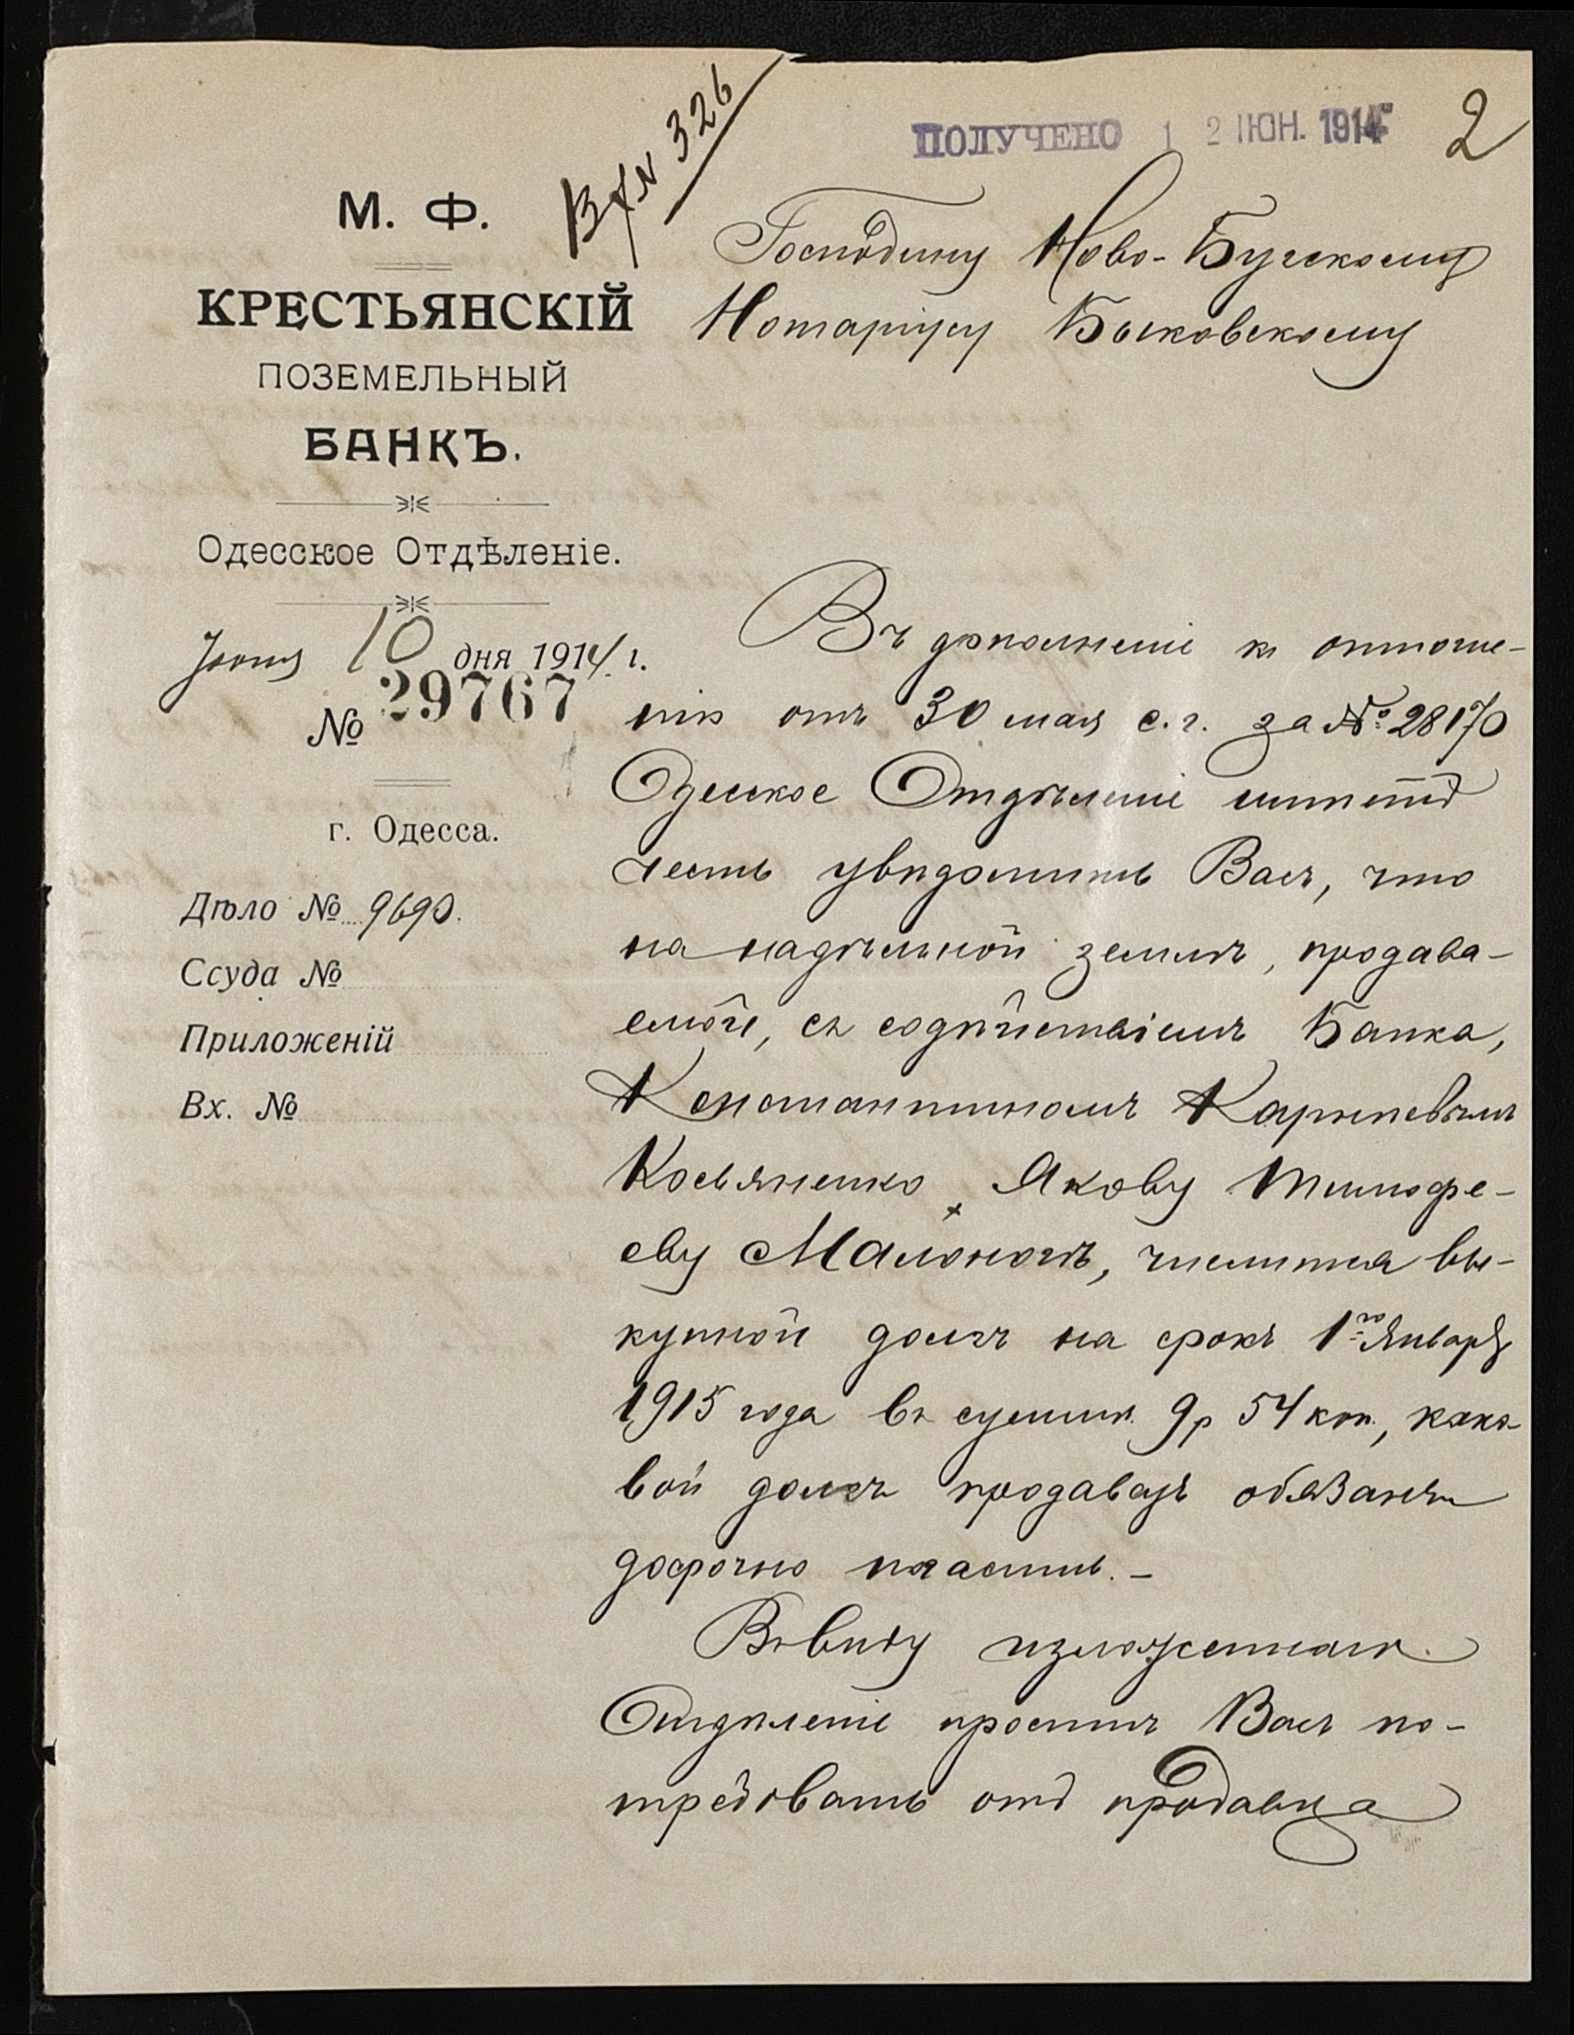 Вх № 326
ПОЛУЧЕНО 12 ІЮН. 1914
2
М. Ф.
КРЕСТЬЯНСКІЙ
ПОЗЕМЕЛЬНЫЙ
БАНКЪ.
Одесское Отдѣленіе.
Іюня 10 дня 1914 г.
№ 29767
г. Одесса.
Дѣло № 9690.
Ссуда №
Приложеній
Вх. №
Господину Ново-Бугскому
Нотаріусу Быковскому
Въ дополненіе къ отноше-
нію отъ 30 мая с.г. за № 28170
Одесское Отдѣленіе имѣетъ
честь увѣдомить Васъ, что
на надѣльной землѣ, продава-
емой, съ содѣйствіемъ Банка,
Константиномъ Карповымъ
Косьяненко Якову Тимофе-
еву, числится вы-
купной долгъ на срокъ 1го Января
1915 года въ суммѣ 9 р 54 коп., како-
вой долгъ продавецъ обязанъ
досрочно погасить.-
Въ виду изложеннаго
Отдѣленіе проситъ Васъ по-
требовать отъ продавца